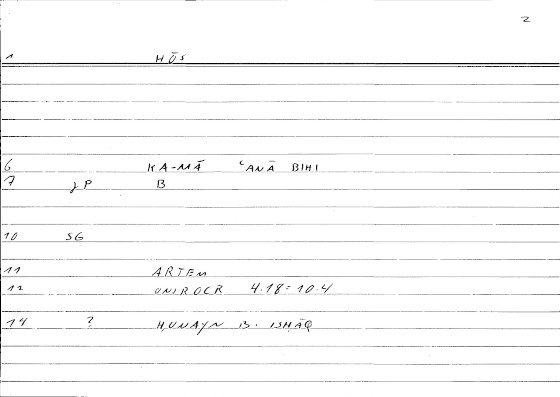 2
1 ḤŌS
6 KA-MĀ ʿANĀ BIHI
7 γP B
10 SG
11 ARTEM
12 ONIROCR 4.18 = 10.4
14 ? ḤUNAYN B. ISḤĀQ